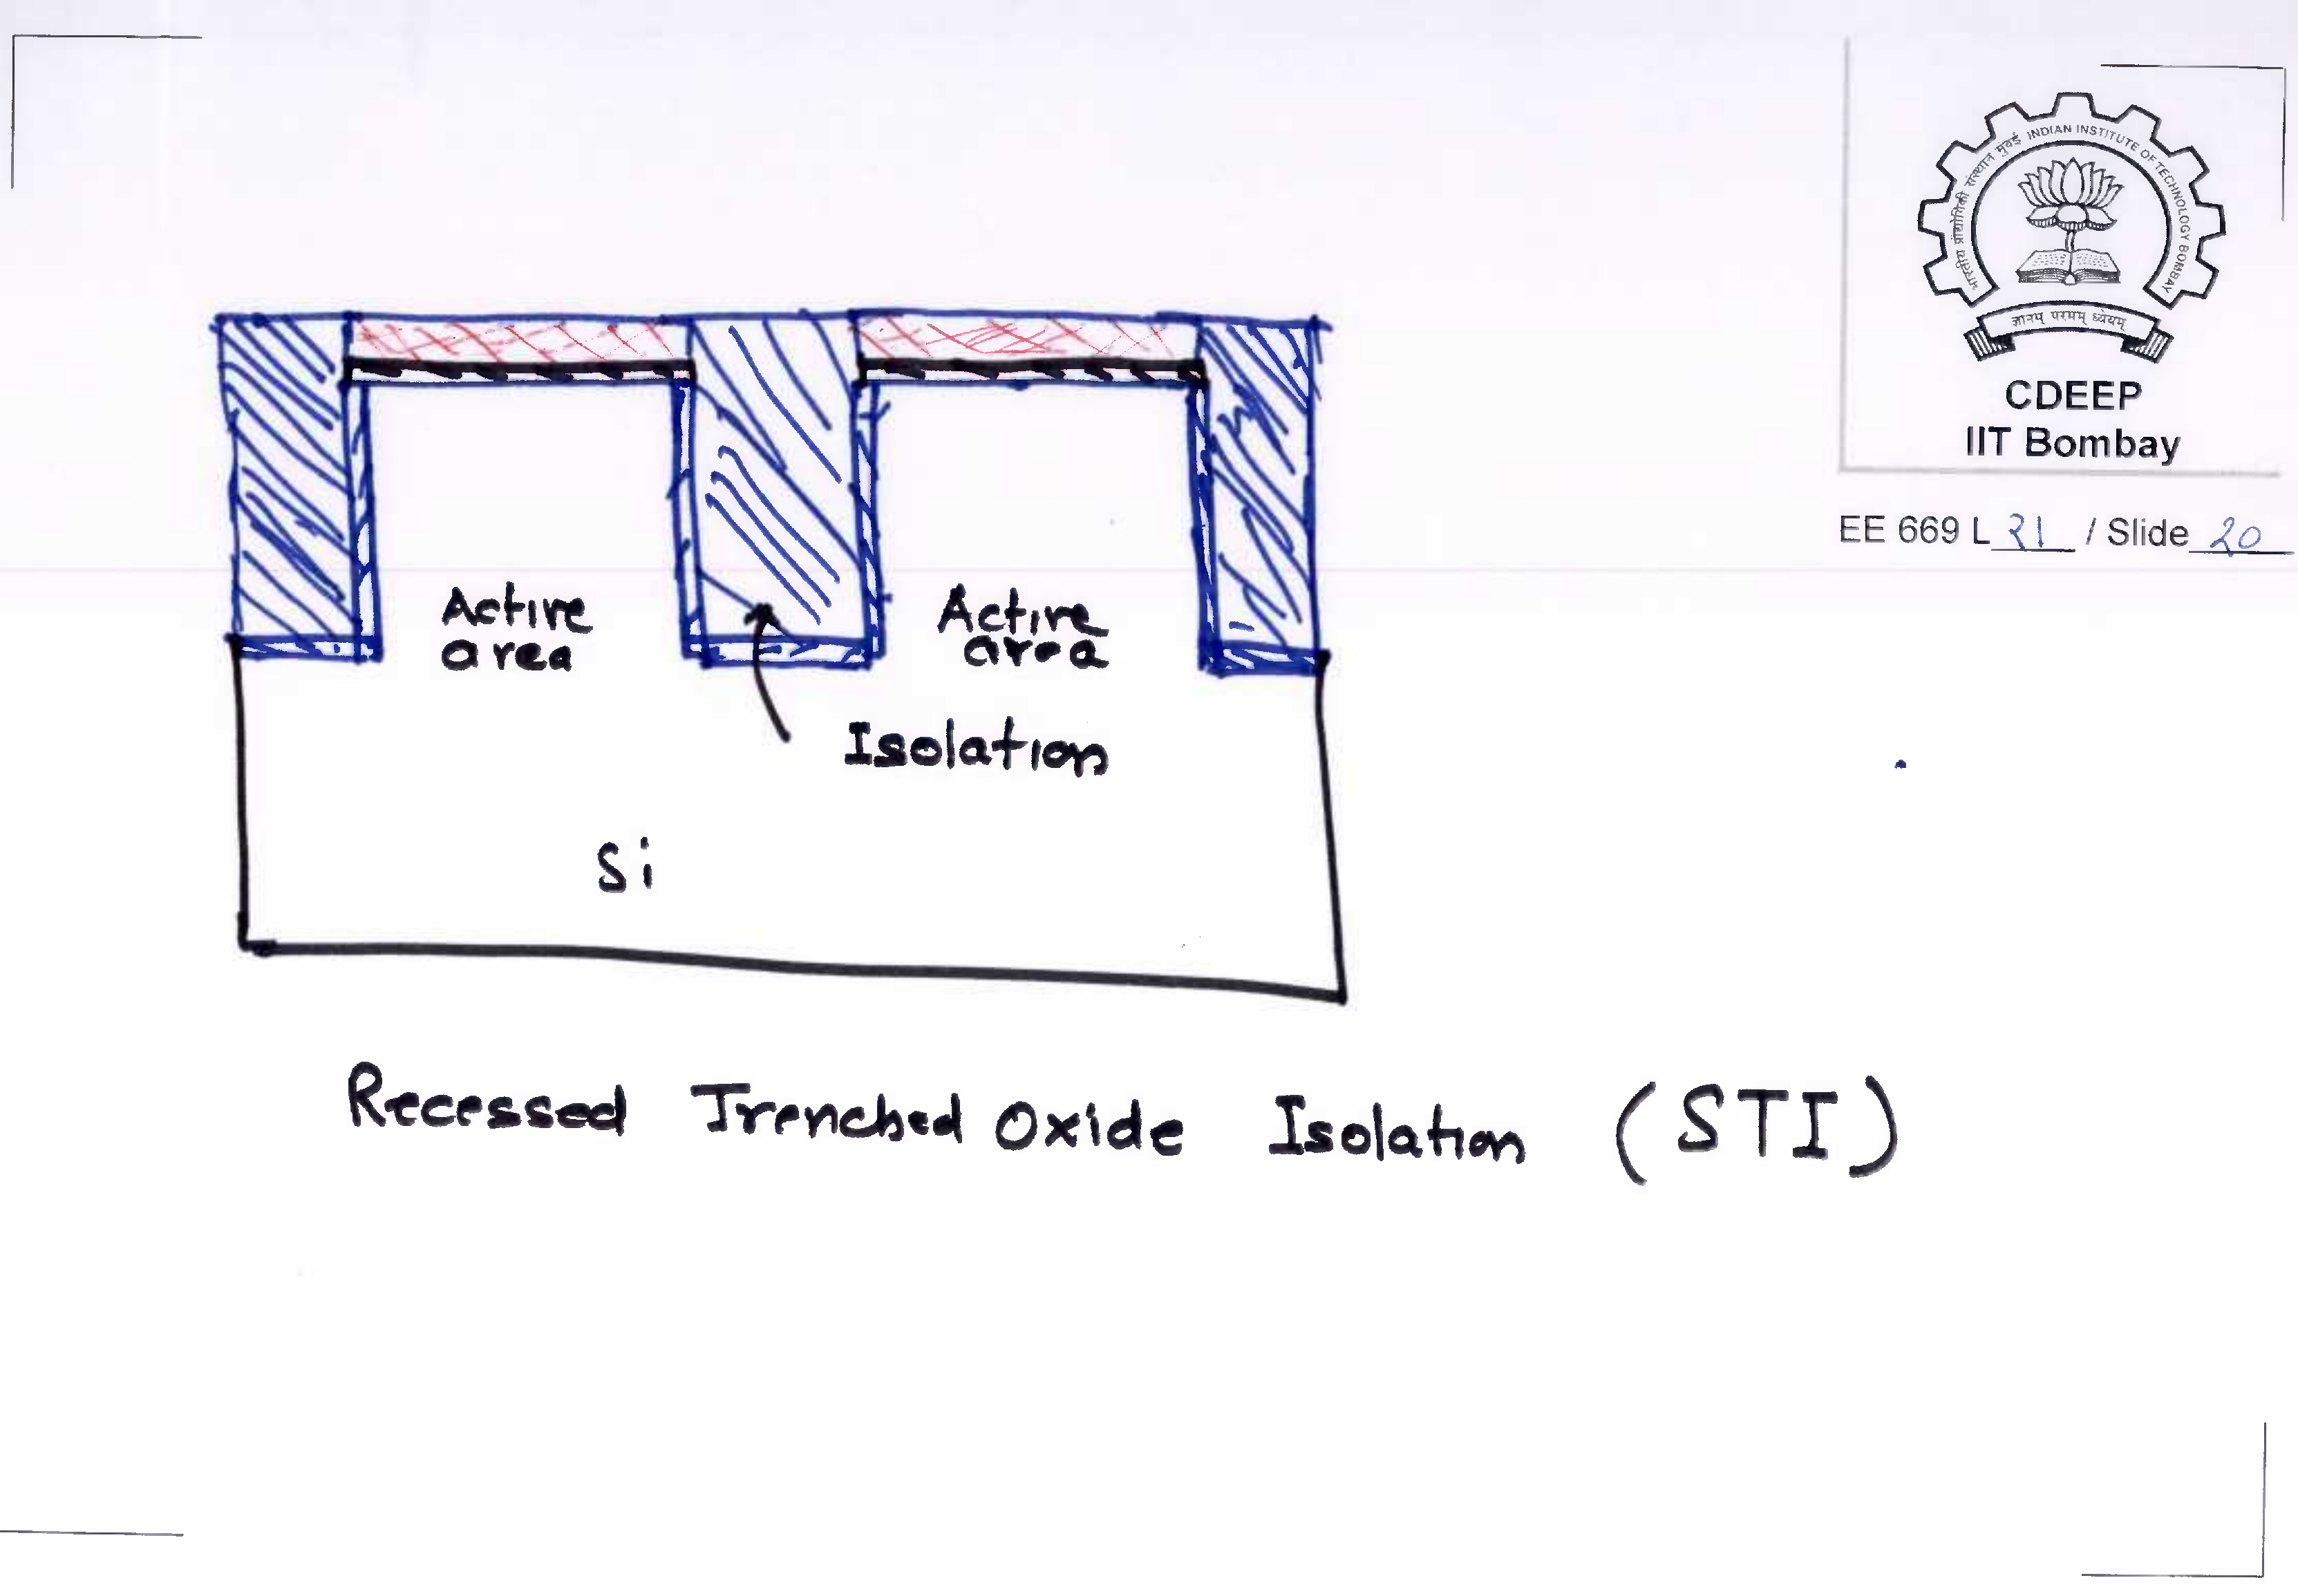 भारतीय प्रौद्योगिकी संस्थान मुंबई INDIAN INSTITUTE OF TECHNOLOGY BOMBAY
ज्ञानम् परमम् ध्येयम्
CDEEP
IIT Bombay
EE 669 L 21 / Slide 20
Active
area
Active
area
Isolation
Si
Recessed Trenched Oxide Isolation (STI)